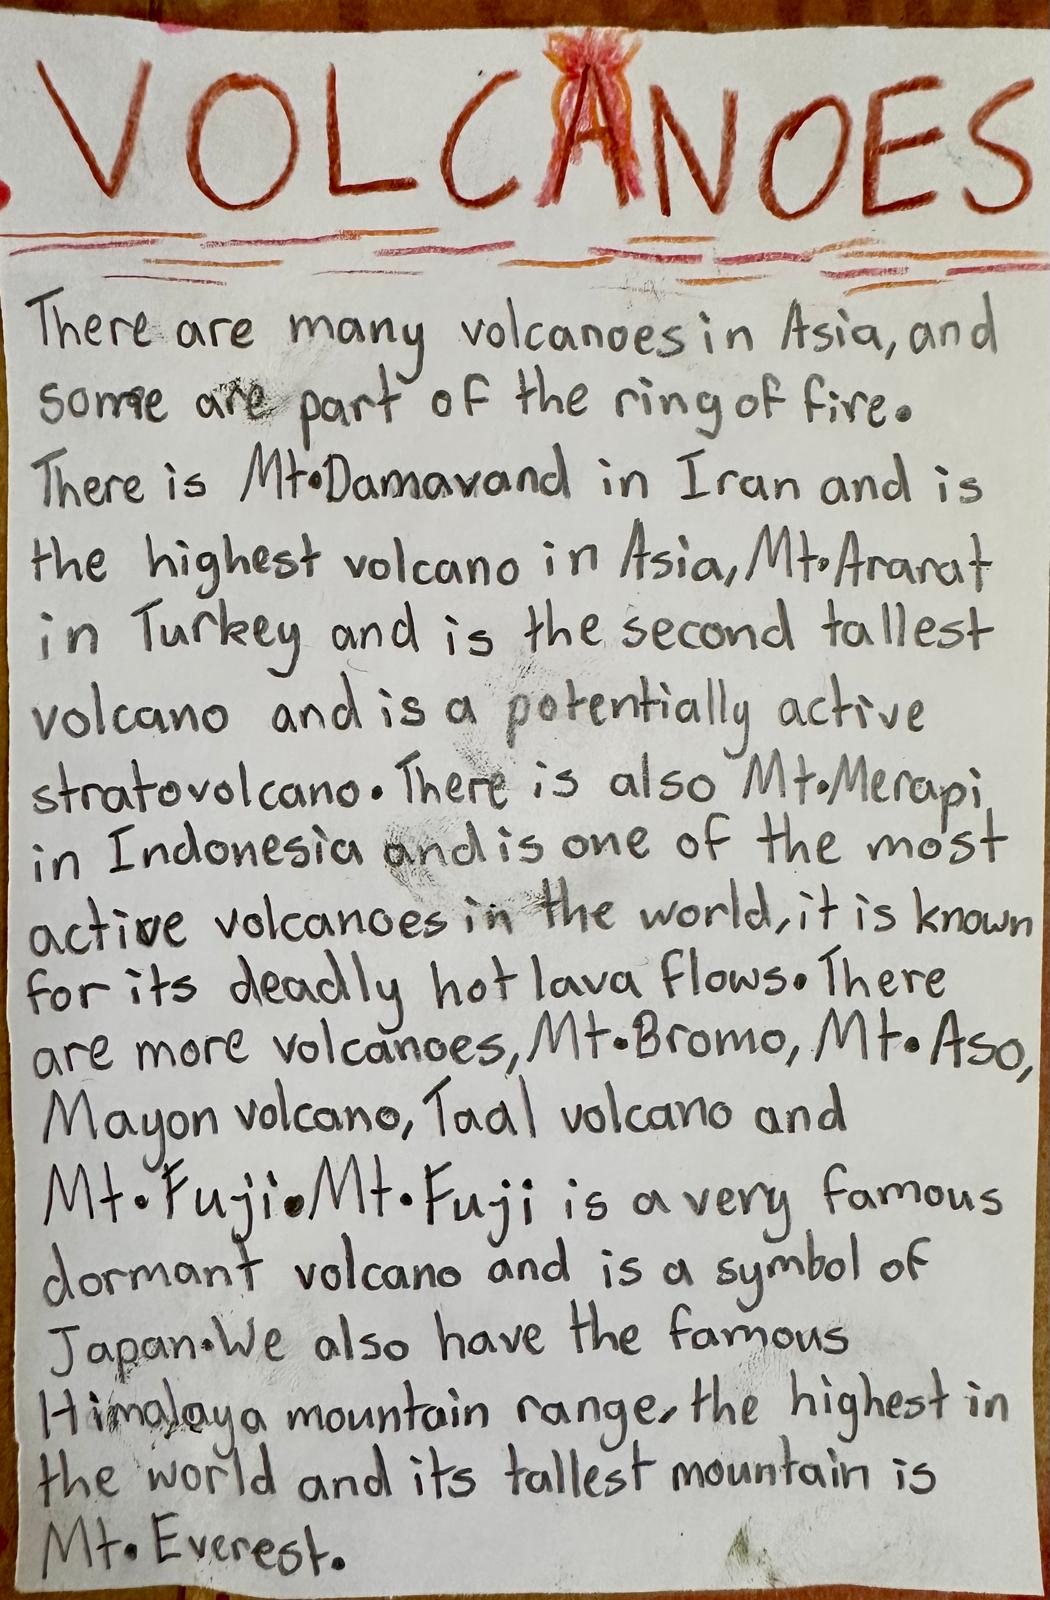 VOLCANOES
There are many volcanoes in Asia, and
some are part of the ring of fire.
There is Mt.Damavand in Iran and is
the highest volcano in Asia, Mt.Ararat
in Turkey and is the second tallest
volcano and is a potentially active
stratovolcano. There is also Mt.Merapi
in Indonesia and is one of the most
active volcanoes in the world, it is known
for its deadly hot lava flows. There
are more volcanoes, Mt.Bromo, Mt.Aso,
Mayon volcano, Taal volcano and
Mt.Fuji. Mt.Fuji is a very famous
dormant volcano and is a symbol of
Japan. We also have the famous
Himalaya mountain range, the highest in
the world and its tallest mountain is
Mt. Everest.